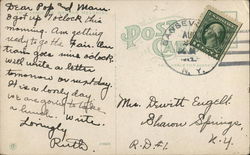 Dear Pop and Mam.
got up 7 oclock this
morning. Am getting
ready to go the Fair. Our
train goes nine oclock
will write a letter
tomorrow or next day.
It is a lovely day
we are going to take
a lunch. Write.
Lovingly
Ruth.
POST CARD
AUG
N.Y.
Mrs. Dewitt Engell
Sharon Springs,
R.D.#1. N.Y.